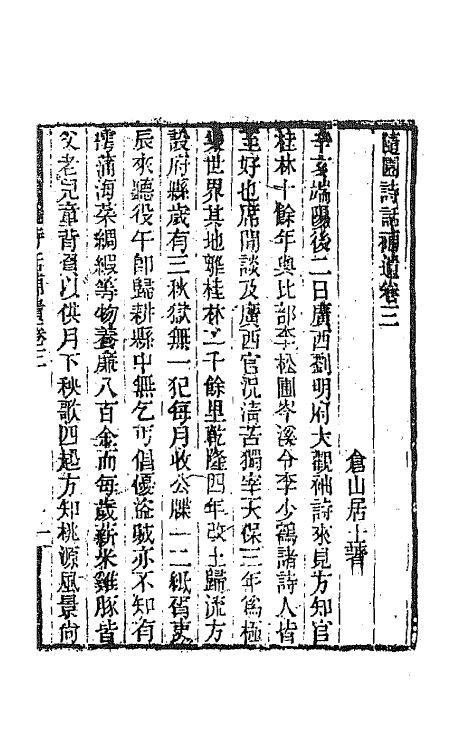 隨園詩話補遺卷三
倉山居士著
辛亥端陽後二日廣西劉明府大觀袖詩來見方知官
桂林十餘年與比部李松圃岑溪令李少鶴諸詩人皆
至好也席間談及廣西官況清苦獨宰天保三年為極
樂世界其地離桂林二千餘里乾隆四年改土歸流方
設府縣歲有三秋獄無一犯每月收公牒一二紙胥吏
辰來聽役午即歸耕縣中無乞丐倡優盜賊亦不知有
樗蒲海菜綢緞等物養廉八百金而每歲薪米雞豚皆
父老兒童背負以供月下秧歌四起方知桃源風景尚